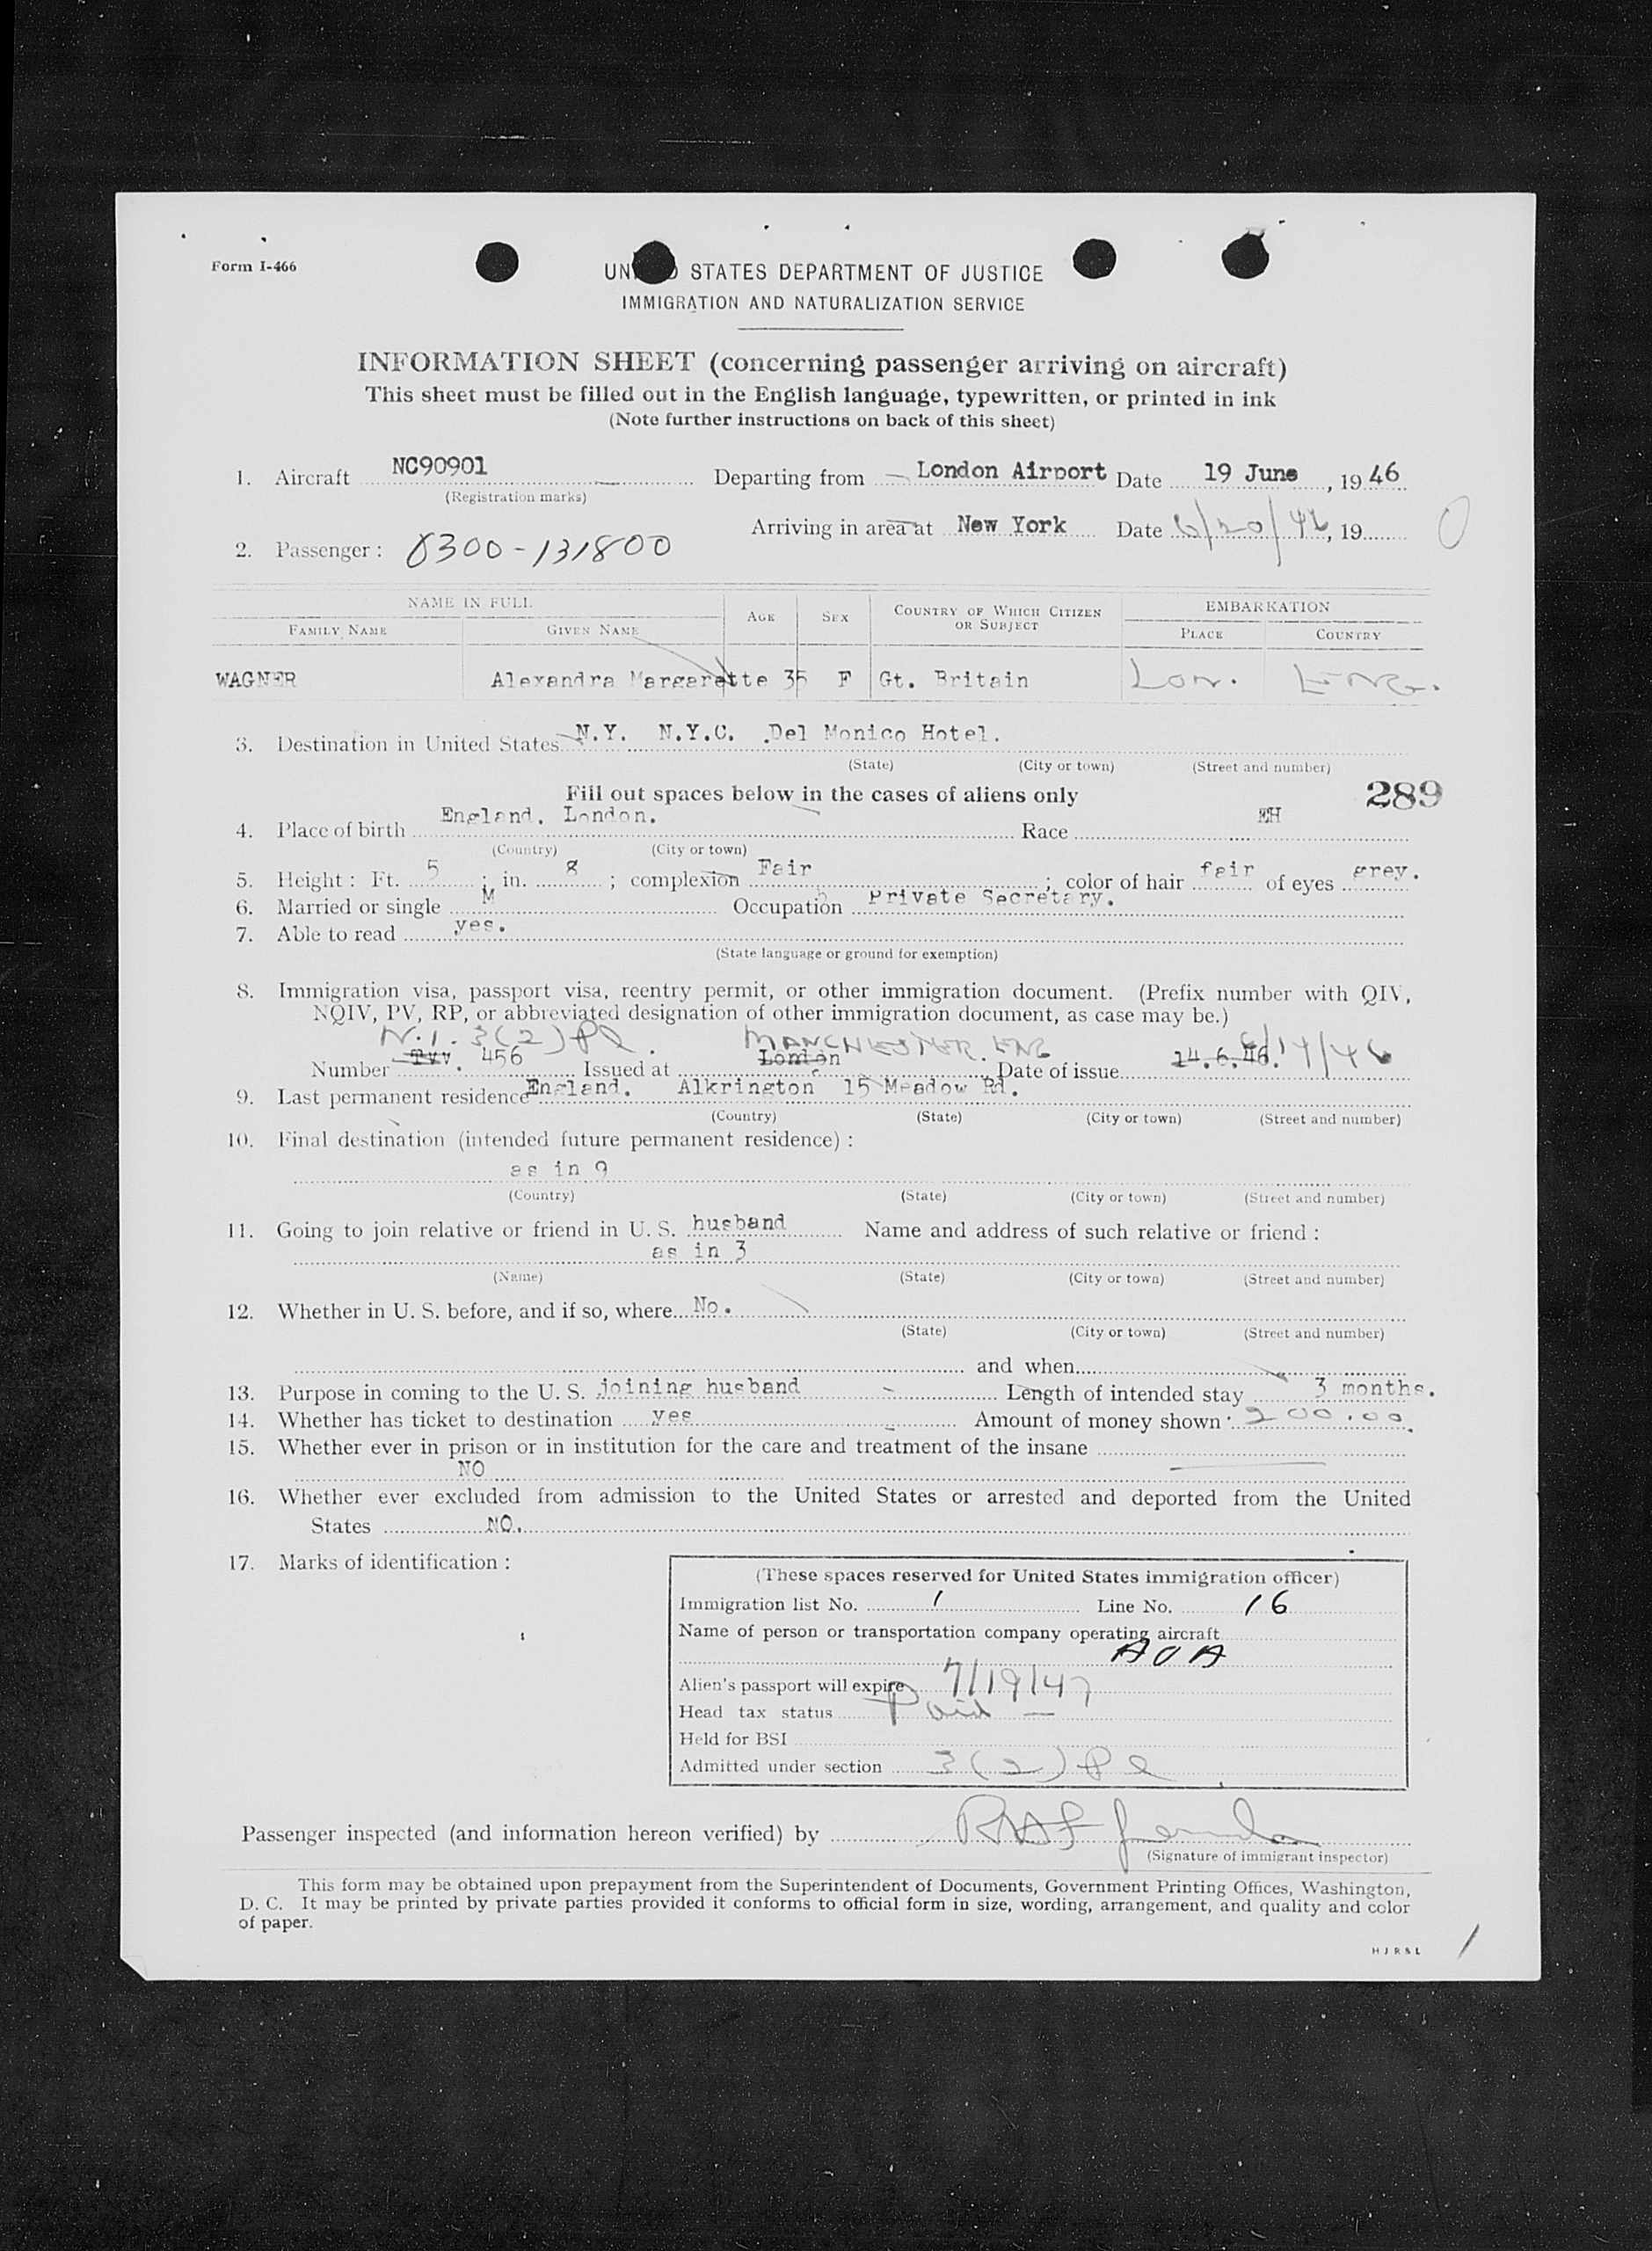 Form I-466
UN D STATES DEPARTMENT OF JUSTICE
IMMIGRATION AND NATURALIZATION SERVICE
INFORMATION SHEET (concerning passenger arriving on aircraft)
This sheet must be filled out in the English language, typewritten, or printed in ink
(Note further instructions on back of this sheet)
1. Aircraft NC90901 Departing from London Airport Date 19 June, 1946
(Registration marks)
Arriving in area at New York Date 6/20/46, 19
2. Passenger: 0300-131800
NAME IN FULL AGE SEX COUNTRY OF WHICH CITIZEN OR SUBJECT EMBARKATION
FAMILY NAME GIVEN NAME PLACE COUNTRY
WAGNER Alexandra Margarette 35 F Gt. Britain Lon. ENG.
3. Destination in United States N.Y. N.Y.C. Del Monico Hotel.
(State) (City or town) (Street and number)
Fill out spaces below in the cases of aliens only 289
4. Place of birth England. London. Race EH
(Country) (City or town)
5. Height: Ft. 5; in. 8; complexion Fair; color of hair fair of eyes grey.
6. Married or single M Occupation Private Secretary.
7. Able to read yes.
(State language or ground for exemption)
8. Immigration visa, passport visa, reentry permit, or other immigration document. (Prefix number with QIV,
NQIV, PV, RP, or abbreviated designation of other immigration document, as case may be.)
N.I. 3(2) MANCHESTER. ENG 6/14/46
Number 456 Issued at London Date of issue 14.6.46.
9. Last permanent residence England. Alkrington 15 Meadow Rd.
(Country) (State) (City or town) (Street and number)
10. Final destination (intended future permanent residence):
as in 9
(Country) (State) (City or town) (Street and number)
11. Going to join relative or friend in U. S. husband Name and address of such relative or friend:
as in 3
(Name) (State) (City or town) (Street and number)
12. Whether in U. S. before, and if so, where No.
(State) (City or town) (Street and number)
and when
13. Purpose in coming to the U. S. joining husband Length of intended stay 3 months.
14. Whether has ticket to destination yes Amount of money shown 200.00
15. Whether ever in prison or in institution for the care and treatment of the insane
NO
16. Whether ever excluded from admission to the United States or arrested and deported from the United
States NO.
17. Marks of identification:
(These spaces reserved for United States immigration officer)
Immigration list No. 1 Line No. 16
Name of person or transportation company operating aircraft
AOA
Alien's passport will expire 7/19/47
Head tax status Paid —
Held for BSI
Admitted under section 3(2)
Passenger inspected (and information hereon verified) by
(Signature of immigrant inspector)
This form may be obtained upon prepayment from the Superintendent of Documents, Government Printing Offices, Washington,
D. C. It may be printed by private parties provided it conforms to official form in size, wording, arrangement, and quality and color
of paper.
HJR&L